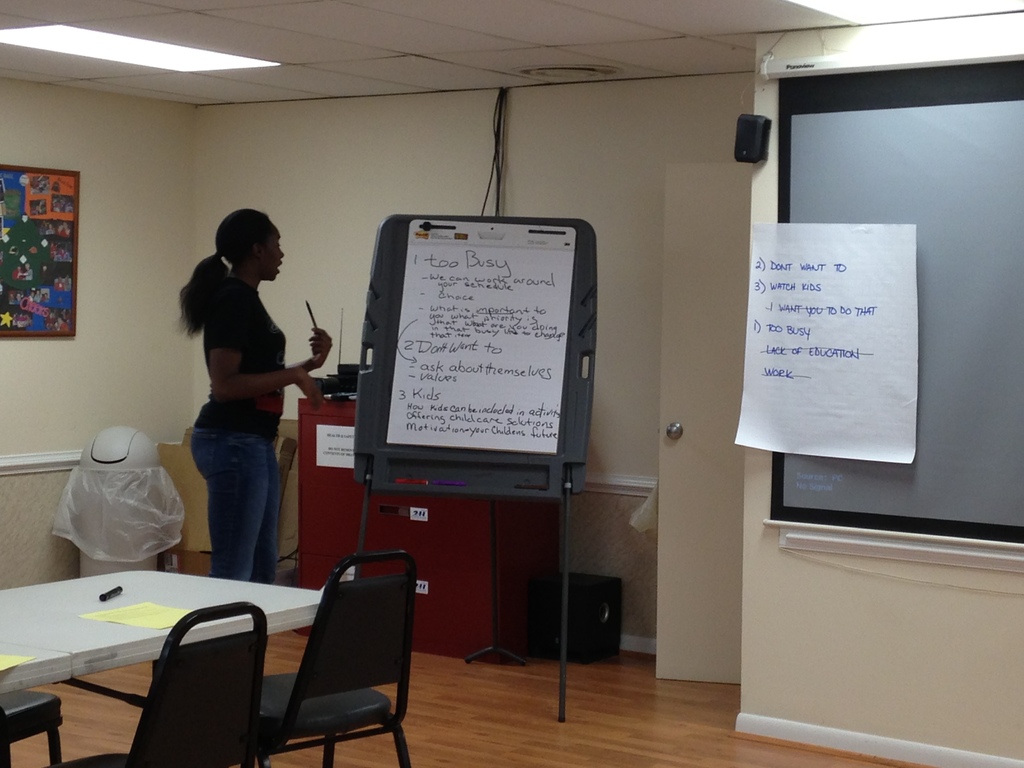 1 too Busy
- We can work around
your schedule
- Choice
- What is important to
you what priority is
that what are you doing
in that busy life to change
that
2 Dont Want to
- ask about themselves
- values
3 Kids
How Kids can be included in activity
Offering childcare solutions
Motivation-your Childens future
2) DONT WANT TO
3) WATCH KIDS
I WANT YOU TO DO THAT
1) TOO BUSY
LACK OF EDUCATION
WORK
Source: PC
No Signal